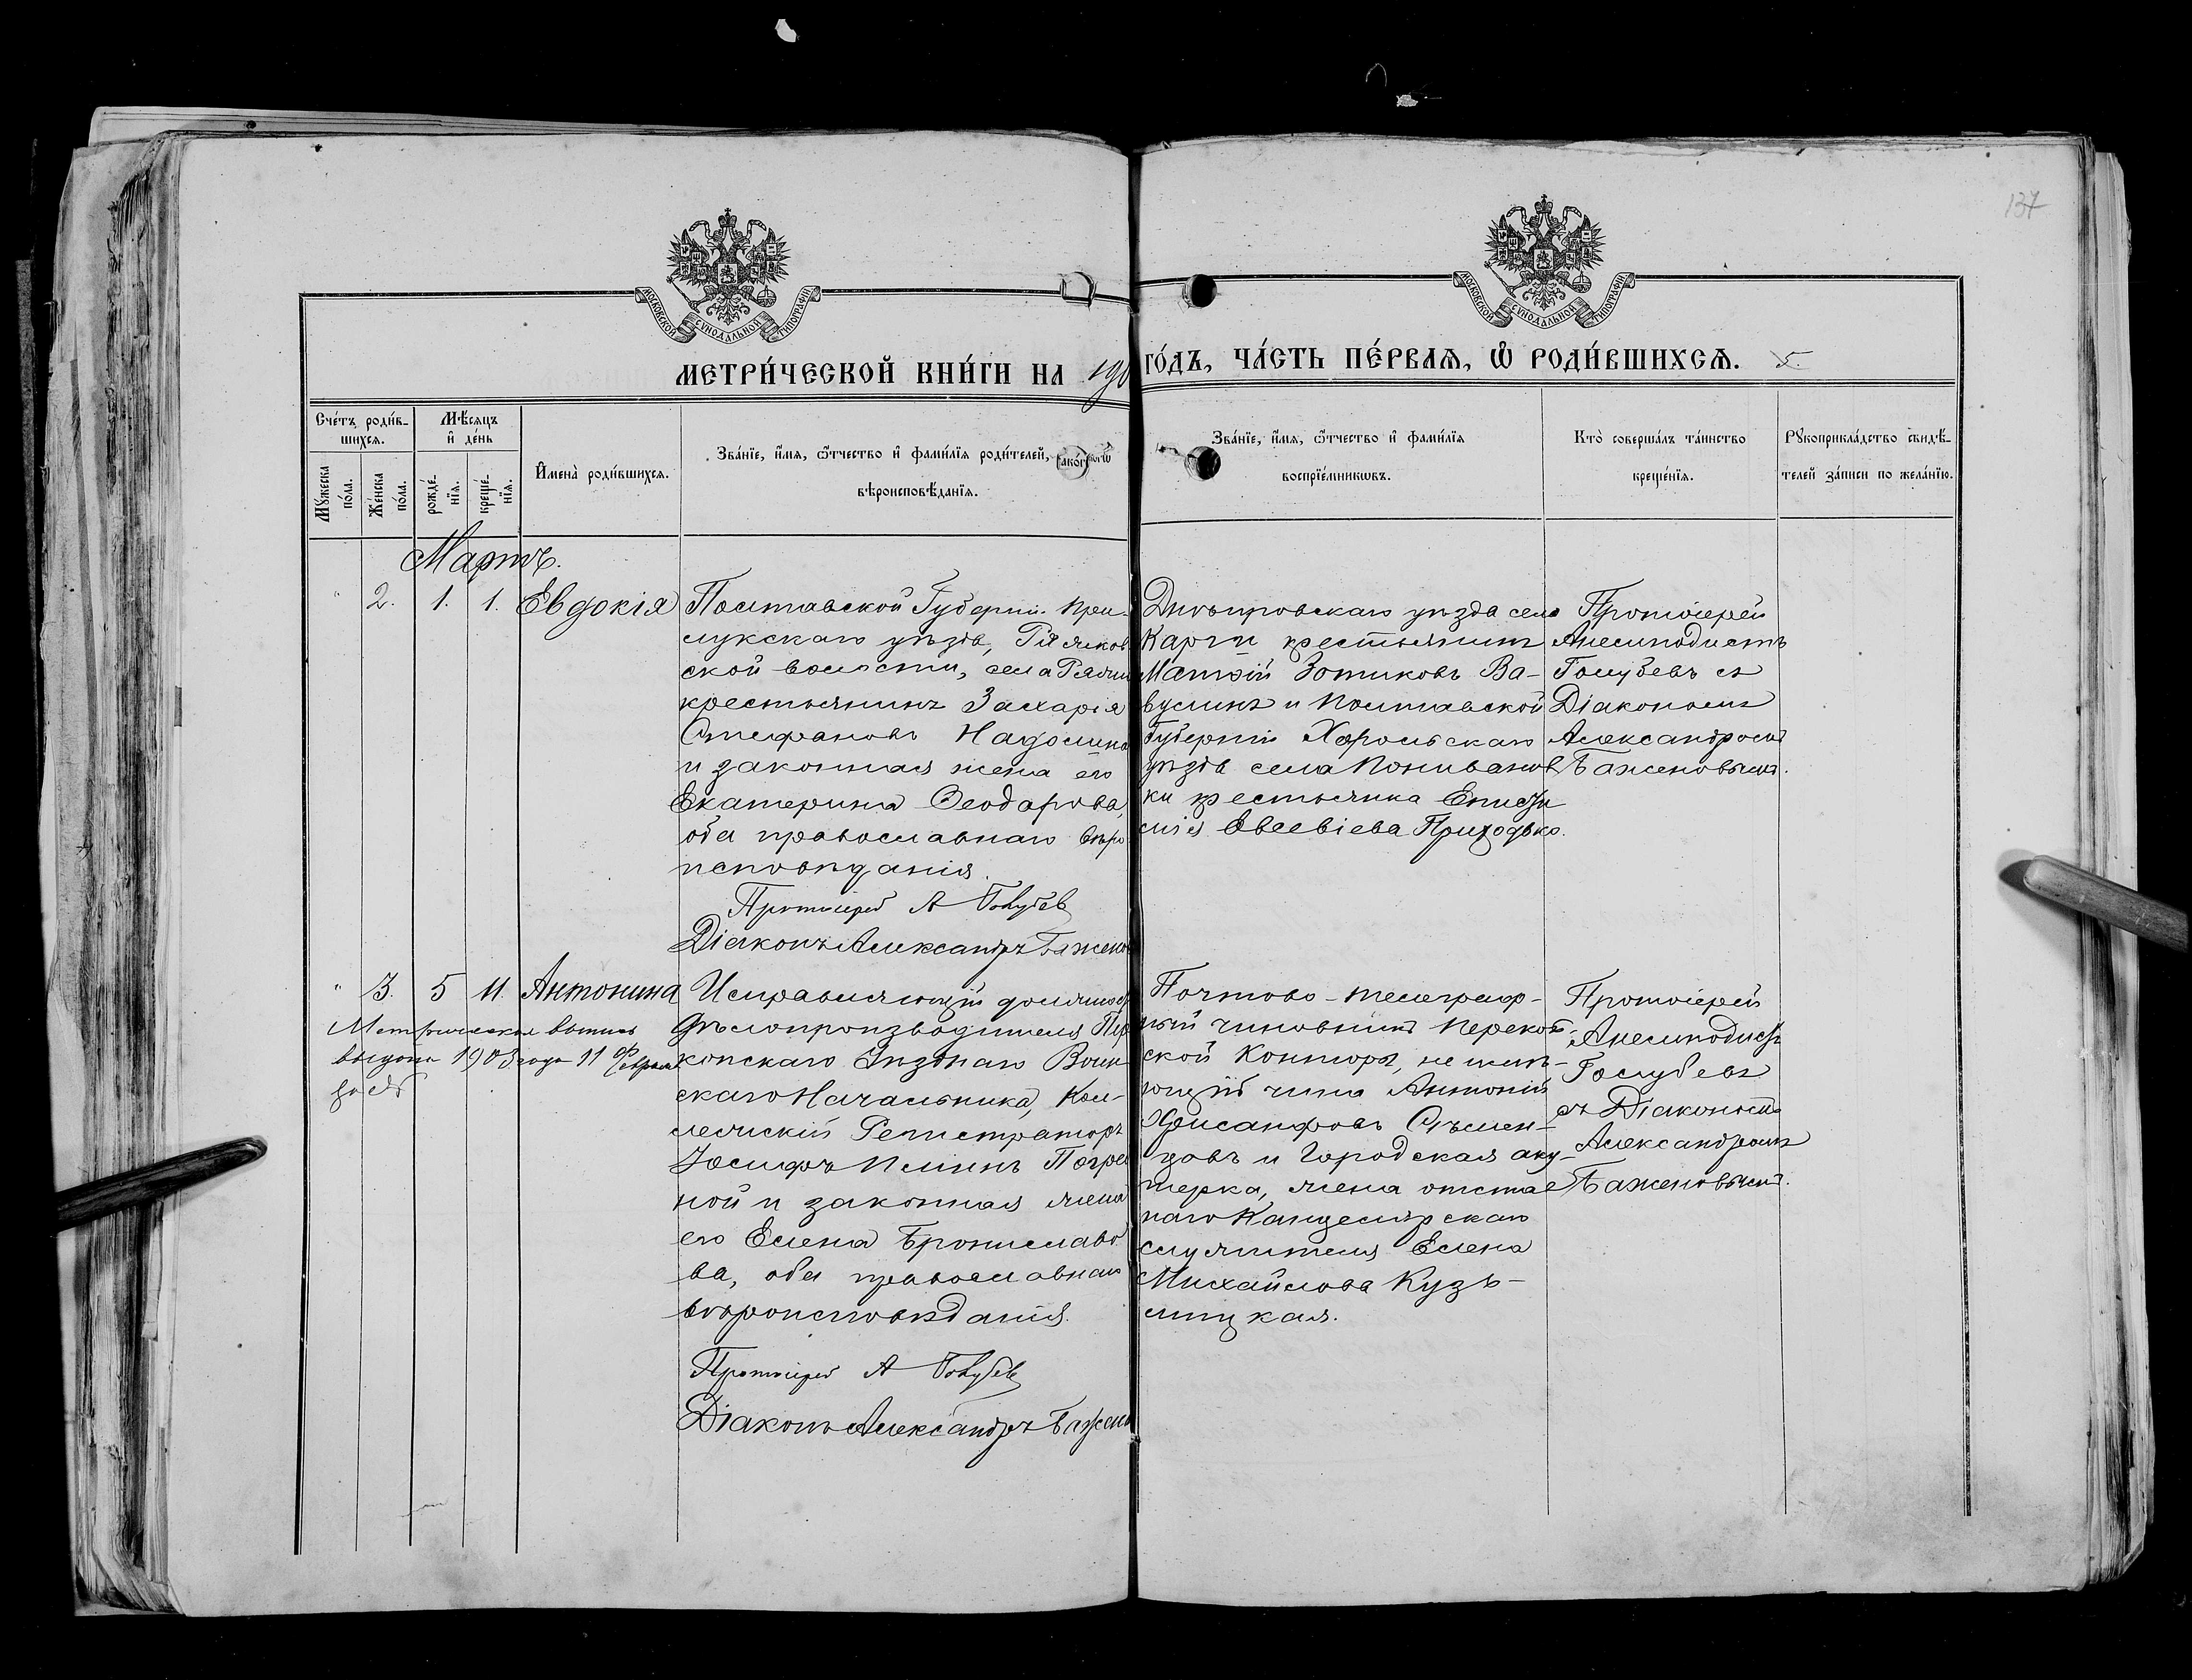 137
МОСКОВСКОЙ СѴНОДАЛЬНОЙ ТИПОГРАФІИ
МОСКОВСКОЙ СѴНОДАЛЬНОЙ ТИПОГРАФІИ
МЕТРИ́ЧЕСКОЙ КНИ́ГИ НА 190
ГО́ДЪ, ЧА́СТЬ ПЕ́РВАЯ, Ѽ РОДИ́ВШИХСЯ. 5.
Сче́тъ роди́в-
шихся.
Мѣ́сяцъ
и҆ де́нь
Мꙋ́жеска
по́ла.
Же́нска
по́ла.
рожде́-
нїя.
креще́-
нїя.
И҆мена̀ роди́вшихся.
Зва́нїе, и҆́мя, ѻ҆́тчество и҆ фами́лїя роди́телей,
вѣроисповѣ́данїя.
Зва́нїе, и҆́мя, ѻ҆́тчество и҆ фами́лїя
воспрїе́мникѡвъ.
Кто̀ соверша́лъ та́инство
креще́нїя.
Рꙋкоприкла́дство свидѣ́-
телей за́писи по жела́нїю.
Мартъ.
" 2. 1. 1. Евдокія
Полтавской Губерніи При-
лукскаго уѣзда,
ской волости, села
крестьянинъ Захарія
Стефановъ
и законная жена его
Екатерина Ѳеодорова,
оба православнаго вѣро
исповѣданія.
Протоіерей А Голубев
Діаконъ Александръ Бажено
Днѣпровскаго уѣзда села
Карги крестьянинъ
Матѳій Зотиковъ Ва-
вулинъ и Полтавской
Губерніи Хорольскаго
уѣзда села Поливанов
ки крестьянка
Евсевіева Приходько.
Протоіерей
Анемподистъ
Голубевъ съ
Діакономъ
Александромъ
Баженовымъ.
" 3. 5 11. Антонина
Метрическая выпись
выдана 1903 года 11 Февраля
за №
Исправляющій должнос
дѣлопроизводителя Пер
копскаго Уѣзднаго Воин
скаго Начальника, Кол-
лежскій Регистраторъ
Іосифъ Погре
ной и законная жена
его Елена Брониславо
ва, оба православнаго
вѣроисповѣданія.
Протоіерей А Голубев
Діаконъ Александръ Бажено
Почтово-телеграф-
ный чиновникъ Перекоп-
ской Конторы, не имѣ-
ющій чина Антоній
Хрисанфовъ
цовъ и Городская аку-
шерка, жена отстав
наго Канцелярскаго
служителя Елена
Михайлова Кузь-
мицкая.
Протоіерей
Анемподистъ
Голубевъ
съ Діакономъ
Александромъ
Баженовымъ.